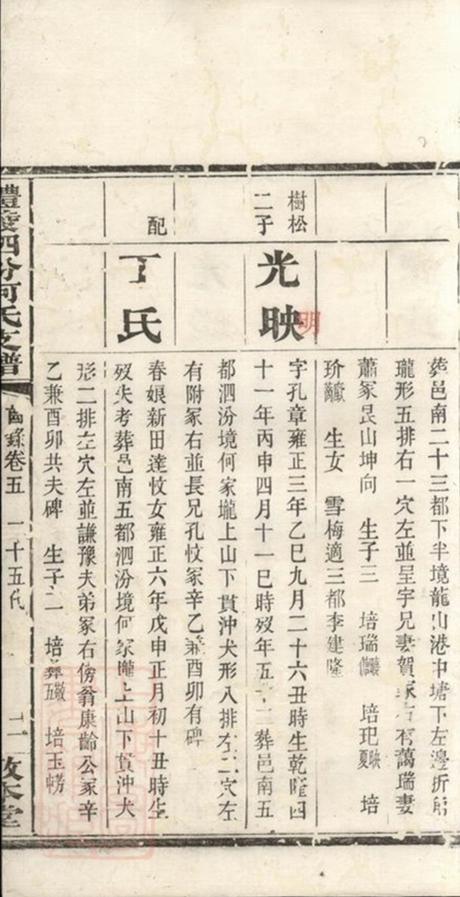 葬邑南二十三都下半境龍山港中塘下左邊折
瓏形五排右一穴左並呈宇兄妻賀冢右有萬瑞妻
蕭冢艮山坤向 生子三 培瑞 培玘 培
玠 生女 雪梅適三都李建隆
樹松二子
光映
明
字孔章雍正三年乙巳九月二十六丑時生乾隆四
十一年丙申四月十一巳時歿年五十二葬邑南五
都泗汾境何家壠上山下貫沖犬形八排右二穴左
有附冢右並長兄孔忮冢辛乙兼酉卯有碑
配
丁氏
春娘新田達忮女雍正六年戊申正月初十丑時生
歿失考葬邑南五都泗汾境何家壠上山下貫沖犬
形二排左穴左並謙豫夫弟冢右傍翁康齡公冢辛
乙兼酉卯共夫碑 生子二 培彝 培玉
醴陵四汾何氏支譜
齒錄卷五 二十五代
敦本堂